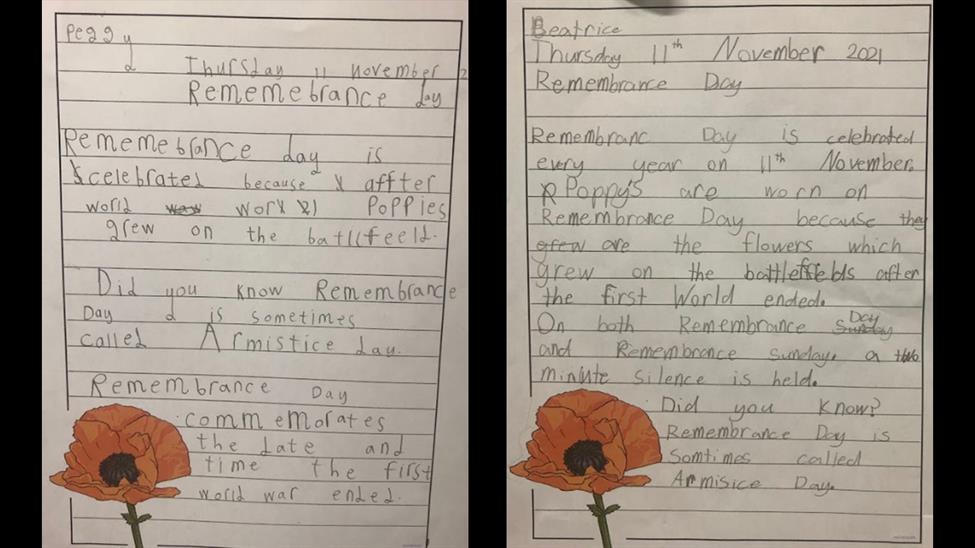 Peggy
Thursday 11 november 2
Rememebrance day
Rememebrance day is
celebrated because affter
world worx 1 POPPies
grew on the batllfeeld.
Did you know Remembrance
Day is sometimes
called Armistice day.
Remembrance Day
commemorates
the date and
time the first
world war ended.
Beatrice
Thursday 11th November 2021
Remembrance Day
Remembranc Day is celebrated
every year on 11th November.
Poppy's are worn on
Remembrance Day because they
grew are the flowers which
grew on the battleffelds after
the first World ended.
On both Remembrance Sunday Day
and Remembrance sunday. a two
minute silence is held.
Did you Know?
Remembrance Day is
Somtimes called
Armisice Day.